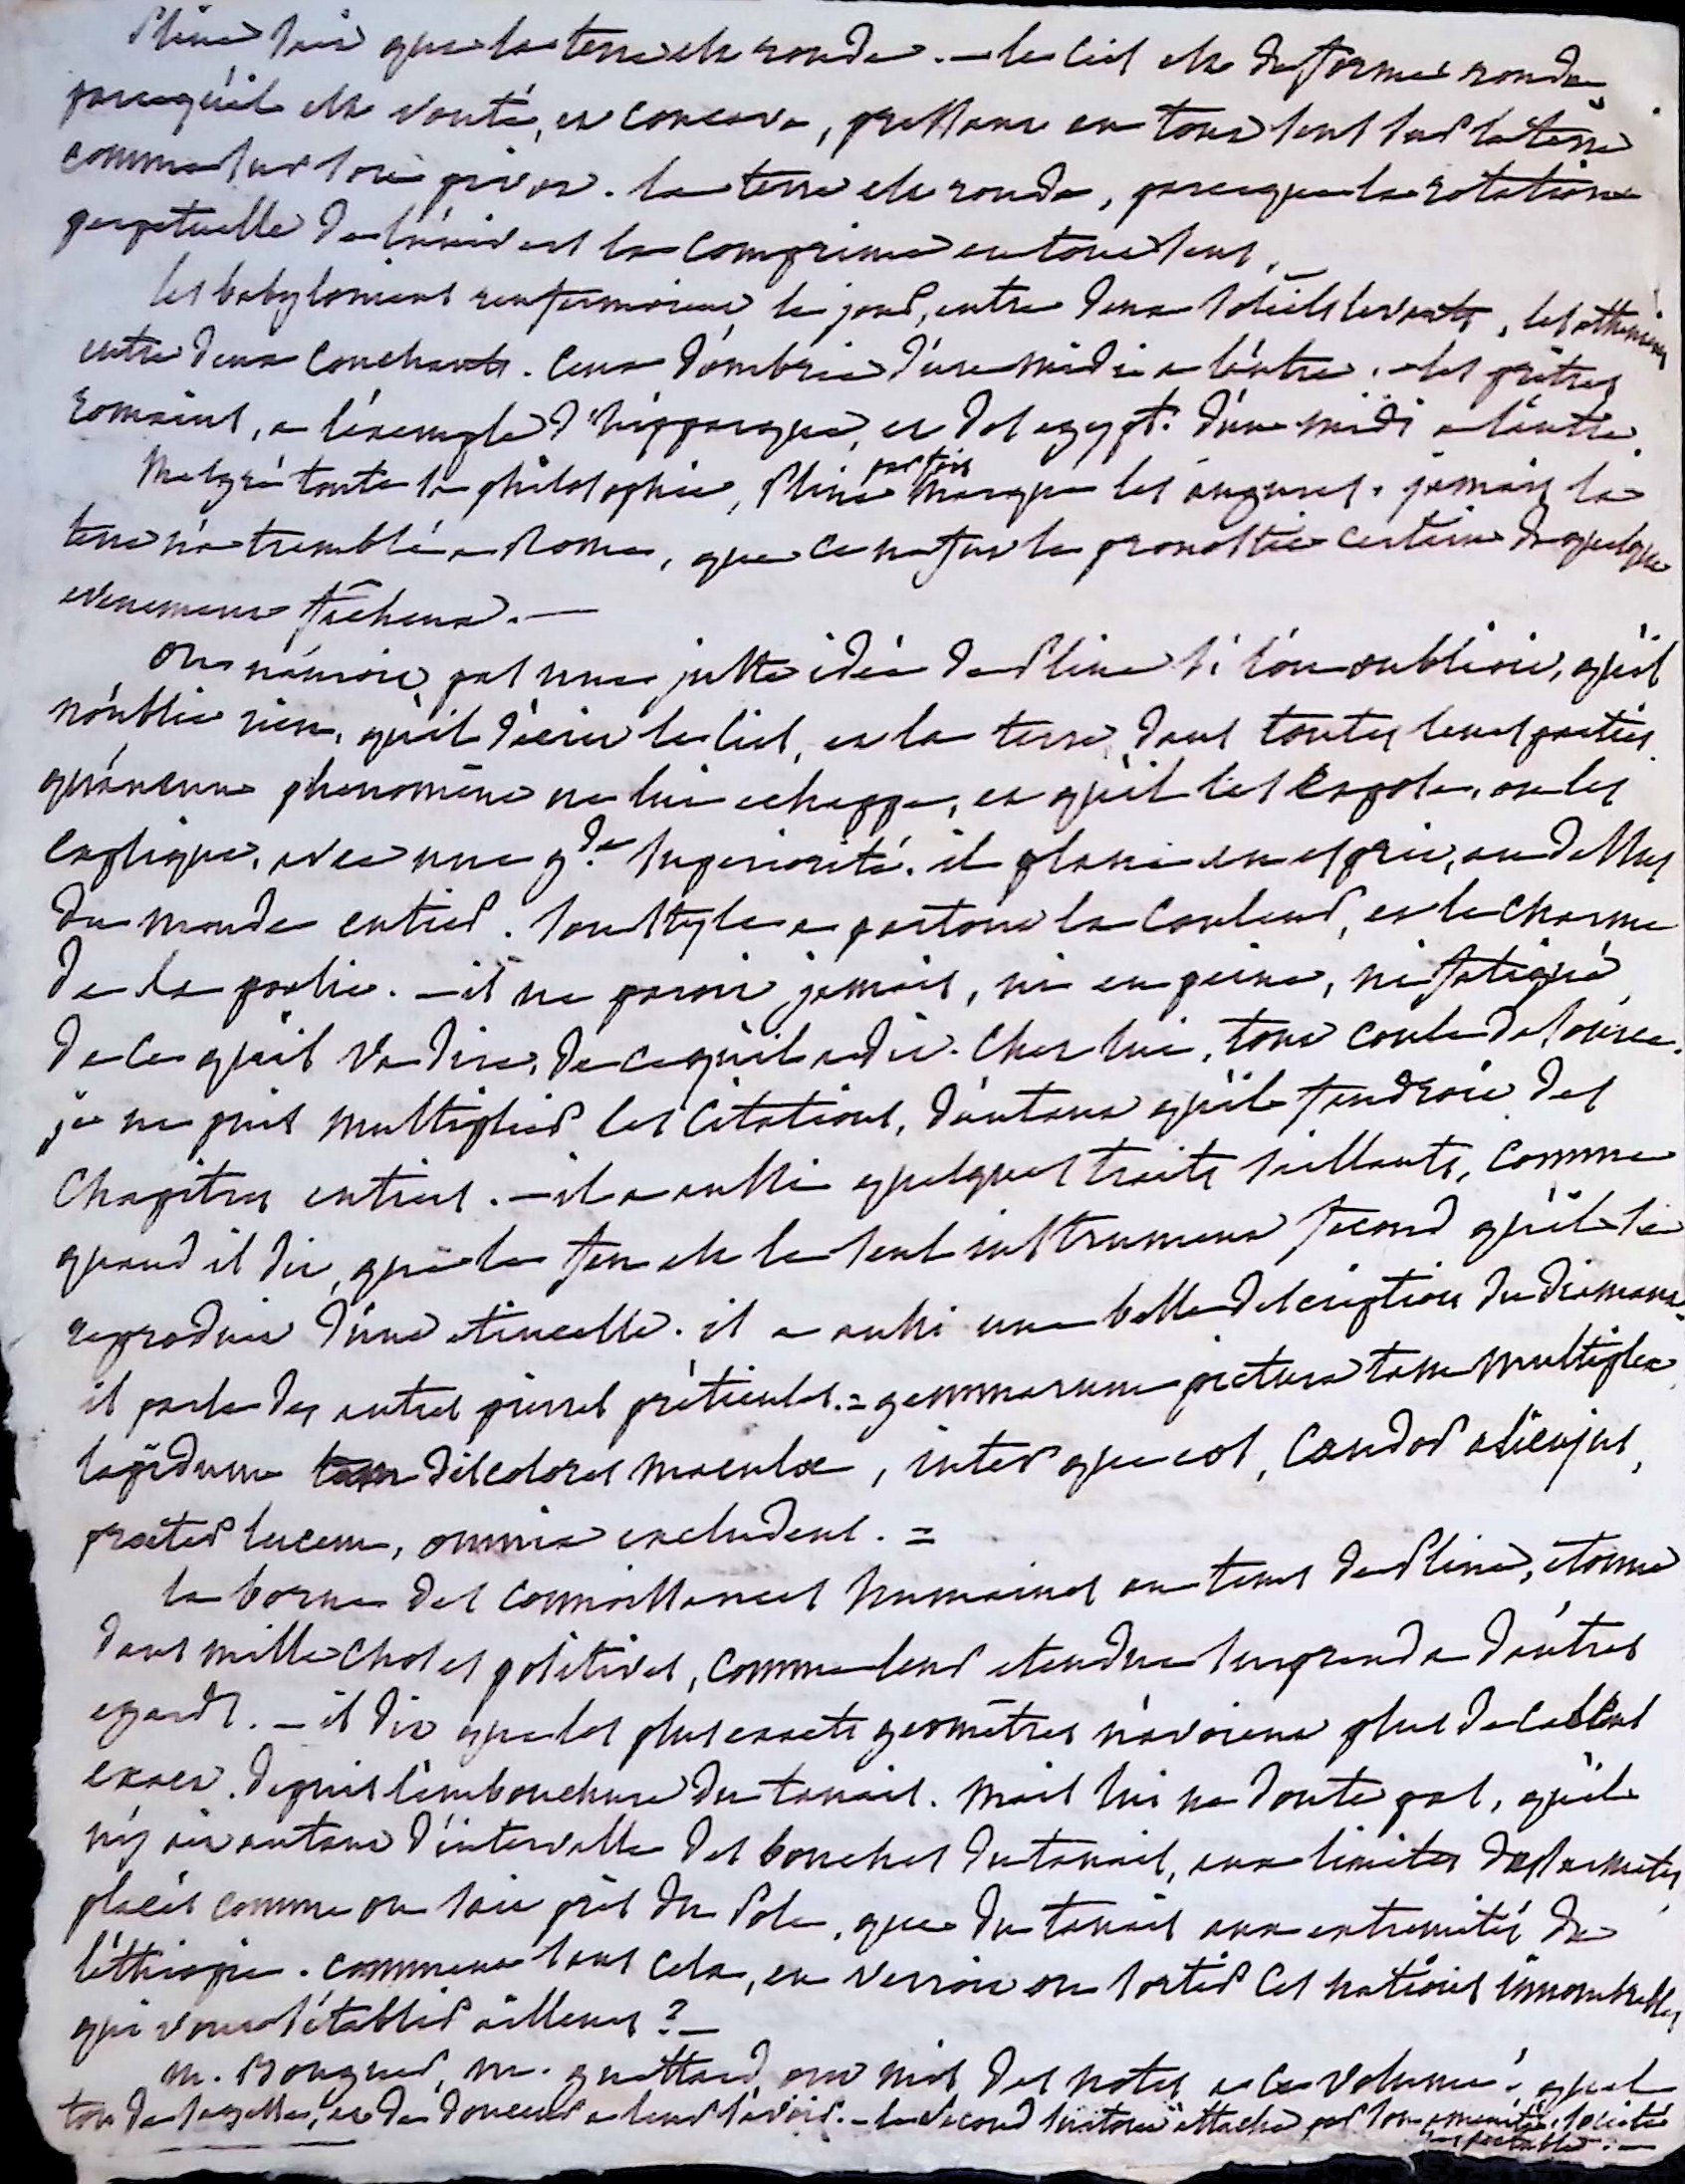 Pline dit que la terre est ronde. — le ciel est de forme ronde
parcequ'il est vouté, et concave, pressant en tout sens sur la terre
comme sur son pivot. la terre est ronde, parceque la rotation
perpetuelle de l'univers la comprime en tout sens. —
les babyloniens renfermoient le jour, entre deux soleils levants, les atheniens
entre deux couchants. ceux d'ombrie d'un midi a l'autre. — les prêtres
romains, a l'exemple d'hipparque, et des egypt. d'un midi a l'autre.
Malgré toute sa philosophie, Pline parfois marque les augures. jamais la
terre n'a tremblé a Rome, que ce ne fut le pronostic certain de quelque
evenement fâcheux. —
on n'auroit pas une juste idée de Pline si l'on oublioit, qu'il
n'oublie rien, qu'il décrit le ciel, et la terre dans toutes leurs parties.
qu'aucun phenomène ne lui echappe, et qu'il les expose, ou les
explique, avec une gde superiorité. il plane en esprit, au dessus
du monde entier. son style a partout la couleur, et le charme
de la poesie. — il ne paroit jamais, ni en peine, ni fatigué
de ce qu'il va dire, de ce qu'il a dit. Chez lui, tout coule de source.
je ne puis multiplier les citations, d'autant qu'il faudroit des
Chapitres entiers. — il a aussi quelques traits saillants, comme
quand il dit, que le feu est le seul instrument fecond qu'il se
reproduit d'une etincelle. il a aussi une belle description du diamant.
il parle des autres pierres prétieuses. = gemmarum pictura tam multiplex
lapidum tam discolores maculæ, inter quas est, candor alicujus,
præter lucem, omnia excludens. =
la borne des connoissances humaines au tems de Pline, etonne
dans mille choses positives, comme leur etendue surprend a d'autres
egards. — il dit que les plus exacts geomètres n'avoient plus de calculs
exact. depuis l'embouchure du tanais. mais lui ne doute pas, qu'il
n'y ait autant d'intervalle des bouches du tanais, aux limites des sarmates,
placés comme on sait près du Pole, que du tanais aux extremités de
l'éthiopie. comment sans cela, en verroit on sortir ces nations innombrables
qui vont s'établir ailleurs? —
m. Bouguer, m. guettard ont mis des notes a ce volume. quel
ton de sagesse, et de douceur a leur savoir. — le second surtout attache par son amenité, societé
respectable. —